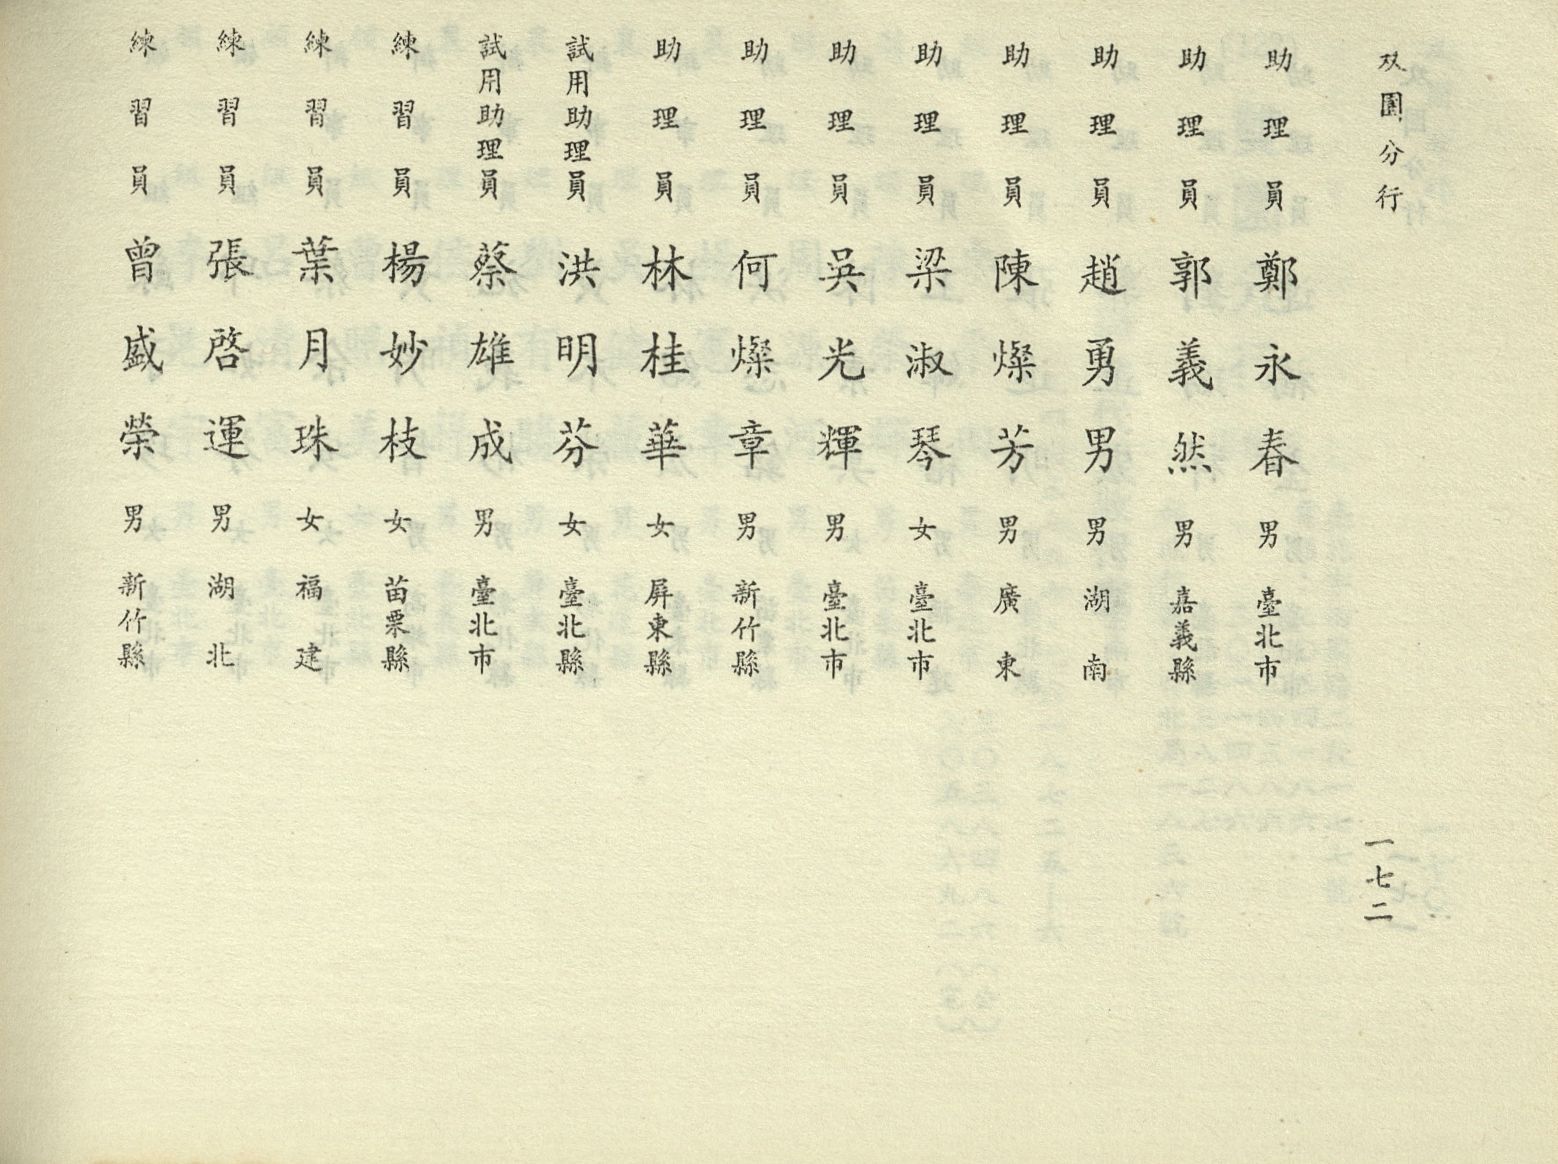 双園分行
一七二
助理員 鄭永春 男 臺北市
助理員 郭義然 男 嘉義縣
助理員 趙勇男 男 湖南
助理員 陳燦芳 男 廣東
助理員 梁淑琴 女 臺北市
助理員 吳光輝 男 臺北市
助理員 何燦章 男 新竹縣
助理員 林桂華 女 屏東縣
試用助理員 洪明芬 女 臺北縣
試用助理員 蔡雄成 男 臺北市
練習員 楊妙枝 女 苗栗縣
練習員 葉月珠 女 福建
練習員 張啓運 男 湖北
練習員 曾盛榮 男 新竹縣